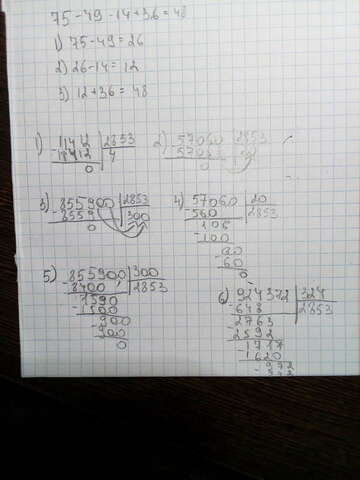 75-49-14+36=48
1) 75-49=26
2) 26-14=12
3) 12+36=48
1) -11412 | 2853
4
0
2) -57060 | 2853
0
3) -855900 | 2853
8559 | 300
0
4) -57060 | 20
560 | 2853
-106
100
-60
60
0
5) -855900 | 300
8400 | 2853
-1590
1500
-900
900
0
6) -924372 | 324
648 | 2853
-2763
2592
-1717
1620
-972
972